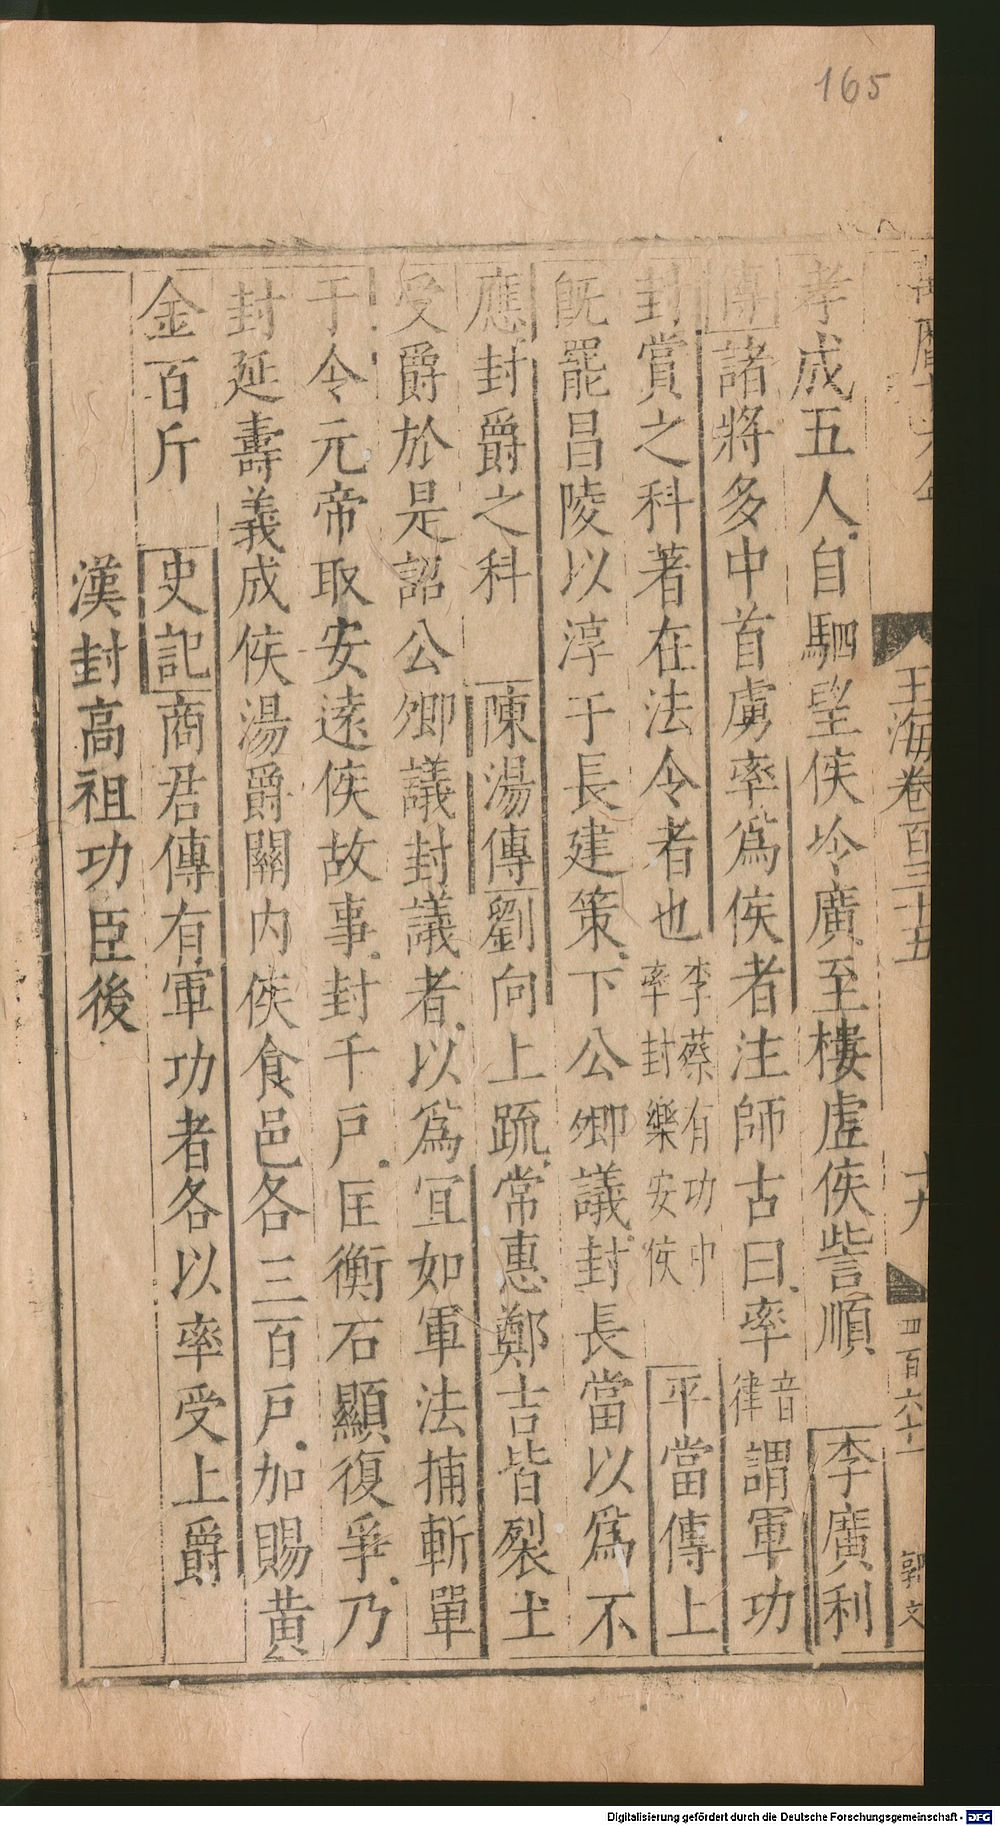 165
萬曆十六年
玉海卷百三十五
十九
四百六十
郭文
孝成五人自駟望侯冷廣至樓虛侯訾順 李廣利
傳諸將多中首虜率爲侯者注師古曰率音律謂軍功
封賞之科著在法令者也李蔡有功中率封樂安侯 平當傳上
旣罷昌陵以淳于長建策下公卿議封長當以爲不
應封爵之科 陳湯傳劉向上疏常惠鄭吉皆裂土
受爵於是詔公卿議封議者以爲宜如軍法捕斬單
于令元帝取安遠侯故事封千戶匡衡石顯復爭乃
封延壽義成侯湯爵關內侯食邑各三百戶加賜黃
金百斤 史記商君傳有軍功者各以率受上爵
漢封高祖功臣後
Digitalisierung gefördert durch die Deutsche Forschungsgemeinschaft - DFG